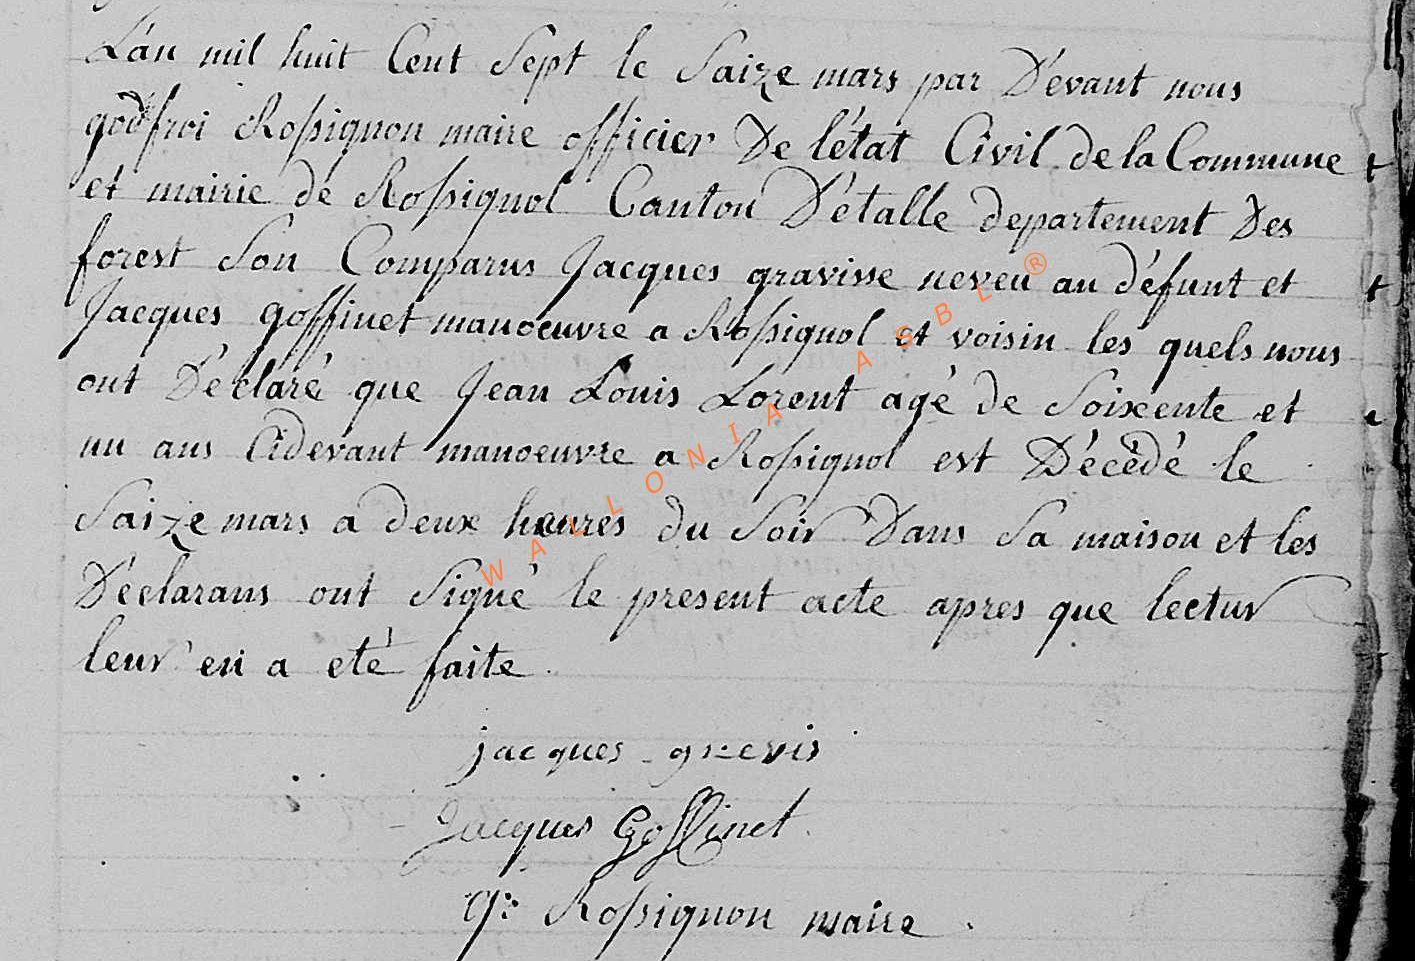 L'an mil huit Cent Sept le Saize mars par Dévant nous
godfroi Rossignon maire officier De l'état Civil de la Commune
et mairie de Rossignol Canton D'étalle departement Des
forest Son Comparus Jacques gravisse neveu au défunt et
Jacques goffinet manoeuvre a Rossignol et voisin les quels nous
ont Déclaré que Jean Louis Lorent agé de Soixente et
un ans Cidevant manoeuvre a Rossignol est Décédé le
Saize mars a deux heures du Soir Dans Sa maison et les
Déclarans ont Signé le present acte apres que lectur
leur en a eté faite
jacques grevis
Jacques Goffinet
g: Rossignon maire
WALLONIA ASBL ®